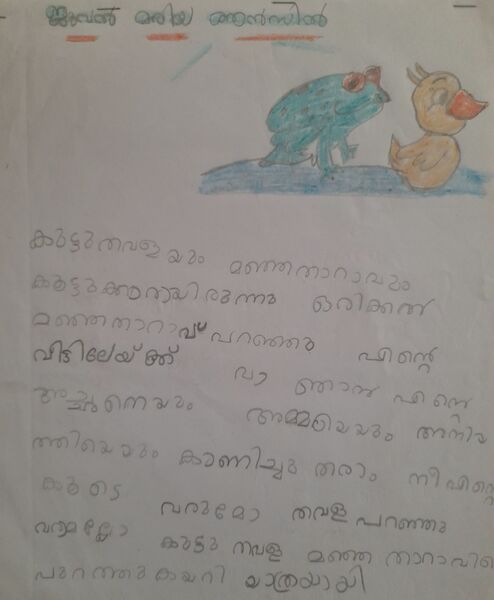 ജുവൽ മരിയ ആൻസിൽ
കുട്ടുതവളയും മഞ്ഞതാറാവും
കൂട്ടുക്കാരായിരുന്നു ഒരിക്കൽ
മഞ്ഞതാറാവ് പറഞ്ഞു എന്റെ
വീട്ടിലേയ്ക്ക് വാ ഞാൻ എന്റെ
അച്ഛനെയും അമ്മയെയും അനിയ
ത്തിയെയും കാണിച്ചു തരാം നീ എന്റെ
കൂടെ വരുമോ തവള പറഞ്ഞു
വരാമല്ലോ കുട്ടു തവള മഞ്ഞ താറാവിന്റെ
പുറത്തു കയറി യാത്രയായി